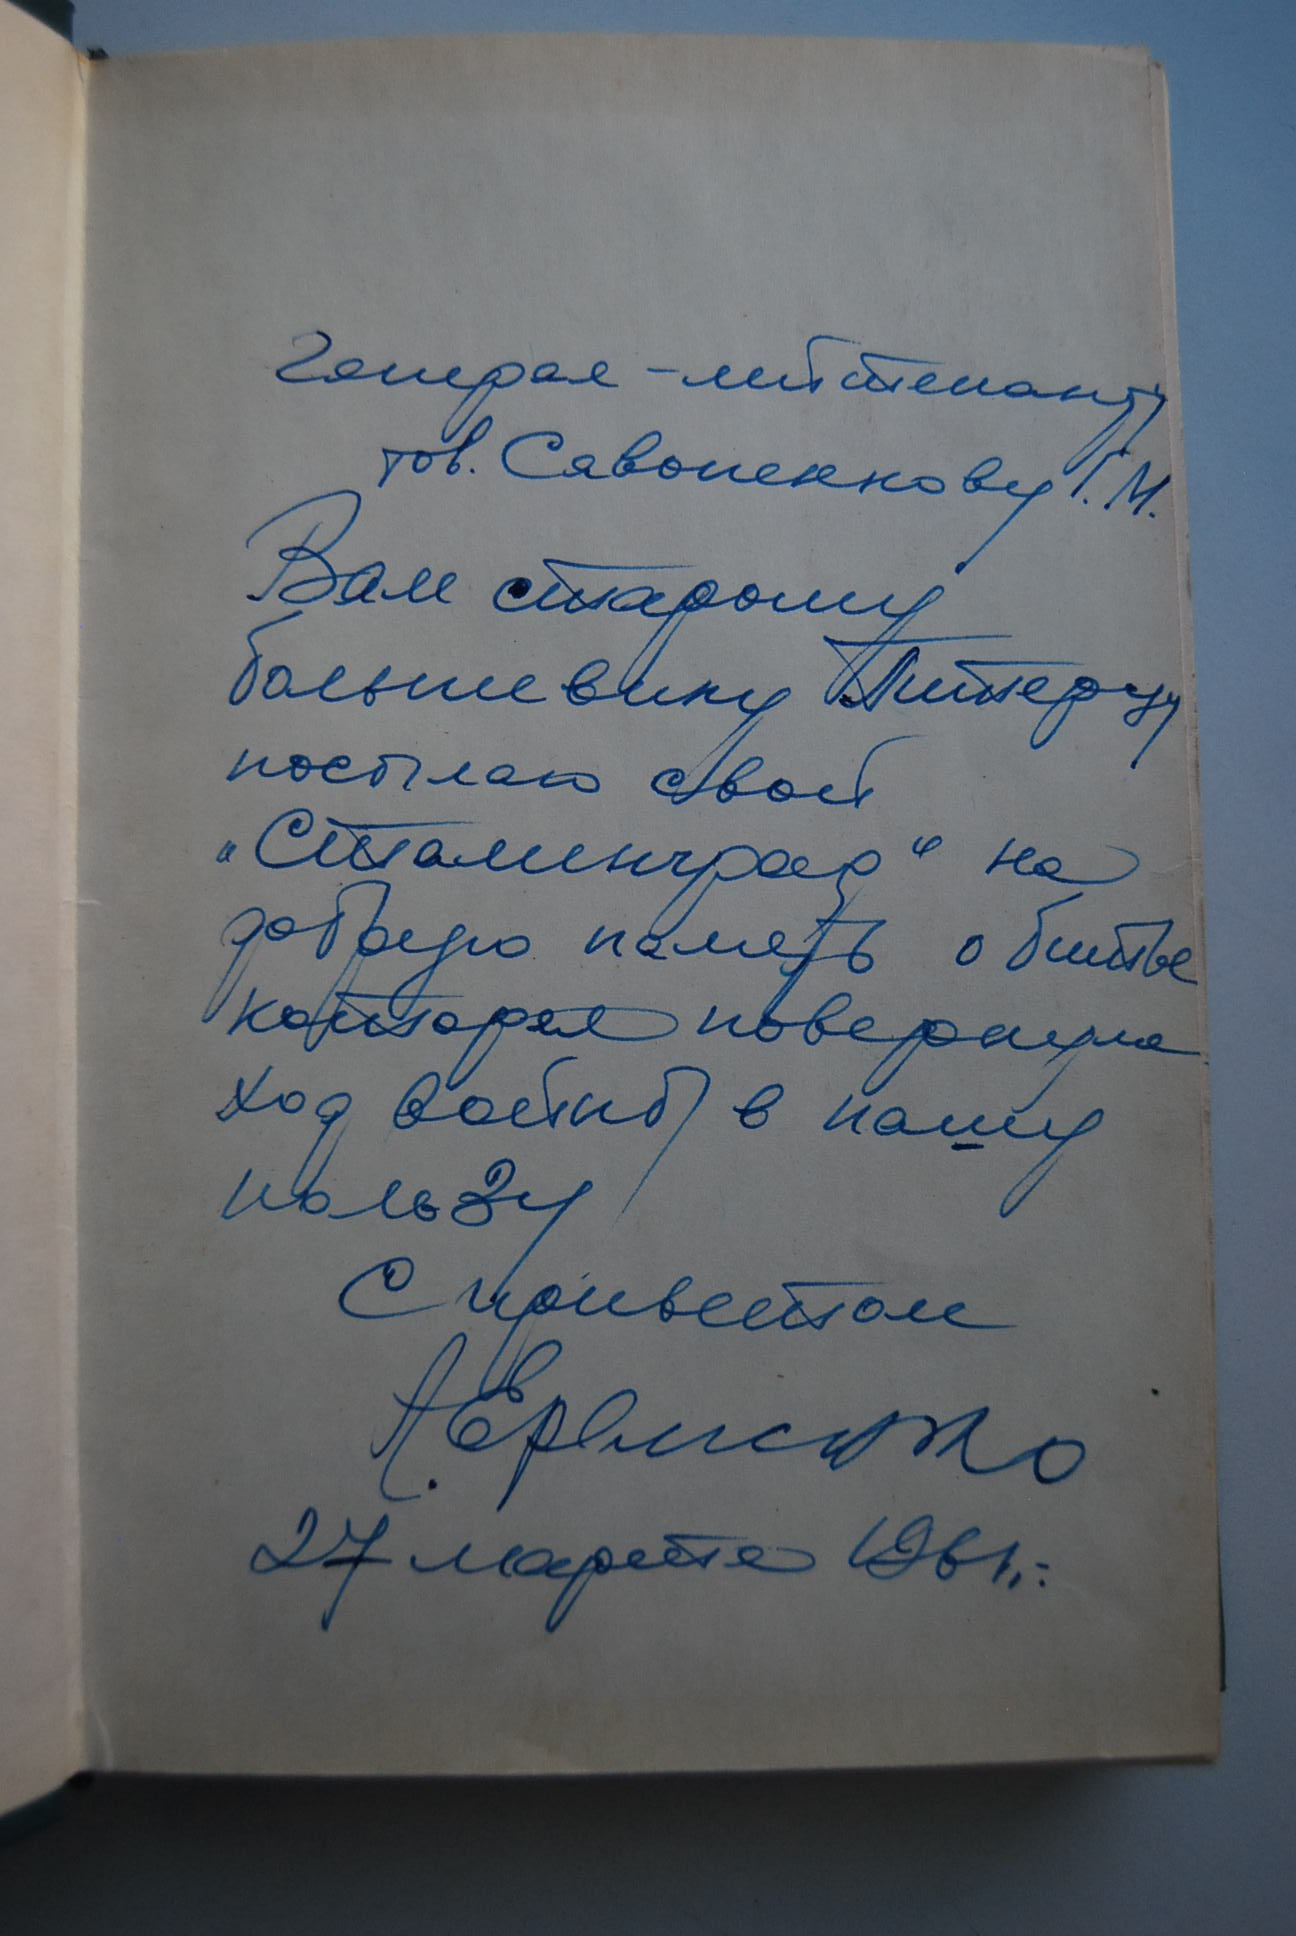 Генерал-лейтенанту
тов. Савоненкову Г.М.
Вам старому
большевику Питерцу
посылаю свой
„Сталинград“ на
добрую память о битве
которая повернула
ход войны в нашу
пользу
С приветом
А. Ерёменко
27 марта 1961 г.